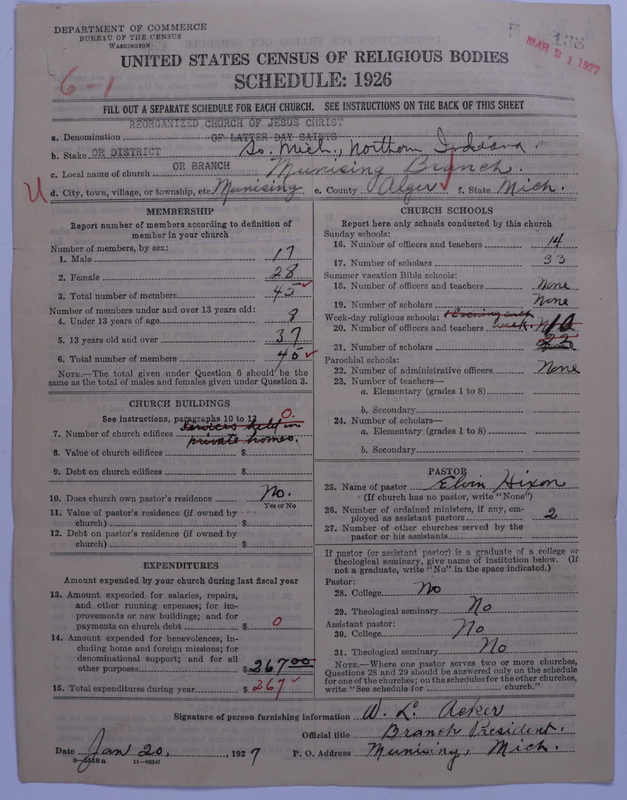 DEPARTMENT OF COMMERCE
BUREAU OF THE CENSUS
WASHINGTON
138
MAR 21 1927
UNITED STATES CENSUS OF RELIGIOUS BODIES
SCHEDULE: 1926
6-1
FILL OUT A SEPARATE SCHEDULE FOR EACH CHURCH. SEE INSTRUCTIONS ON THE BACK OF THIS SHEET
REORGANIZED CHURCH OF JESUS CHRIST
a. Denomination OF LATTER DAY SAINTS
b. Stake OR DISTRICT So. Mich., Northern Indiana.
c. Local name of church OR BRANCH Munising Branch.
U d. City, town, village, or township, etc. Munising e. County Alger f. State Mich.
MEMBERSHIP
Report number of members according to definition of
member in your church
Number of members, by sex:
1. Male 17
2. Female 28
3. Total number of members 45
Number of members under and over 13 years old:
4. Under 13 years of age 8
5. 13 years old and over 37
6. Total number of members 45
NOTE.—The total given under Question 6 should be the
same as the total of males and females given under Question 3.
CHURCH BUILDINGS
See instructions, paragraphs 10 to 12 0.
7. Number of church edifices Services held in
private homes.
8. Value of church edifices $
9. Debt on church edifices $
10. Does church own pastor's residence No.
Yes or No
11. Value of pastor's residence (if owned by
church) $
12. Debt on pastor's residence (if owned by
church) $
EXPENDITURES
Amount expended by your church during last fiscal year
13. Amount expended for salaries, repairs,
and other running expenses; for im-
provements or new buildings; and for
payments on church debt $ 0
14. Amount expended for benevolences, in-
cluding home and foreign missions; for
denominational support; and for all
other purposes $ 267 00
15. Total expenditures during year $ 267
CHURCH SCHOOLS
Report here only schools conducted by this church
Sunday schools:
16. Number of officers and teachers 14
17. Number of scholars 33
Summer vacation Bible schools:
18. Number of officers and teachers None
19. Number of scholars None
Week-day religious schools: 1 Evening each
20. Number of officers and teachers week. 10
21. Number of scholars 22
Parochial schools:
22. Number of administrative officers None
23. Number of teachers—
a. Elementary (grades 1 to 8)
b. Secondary
24. Number of scholars—
a. Elementary (grades 1 to 8)
b. Secondary
PASTOR
25. Name of pastor Elvin Hixon
(If church has no pastor, write "None")
26. Number of ordained ministers, if any, em-
ployed as assistant pastors 2
27. Number of other churches served by the
pastor or his assistants
If pastor (or assistant pastor) is a graduate of a college or
theological seminary, give name of institution below. (If
not a graduate, write "No" in the space indicated.)
Pastor:
28. College No
29. Theological seminary No
Assistant pastor:
30. College No
31. Theological seminary No
NOTE.—Where one pastor serves two or more churches,
Questions 28 and 29 should be answered only on the schedule
for one of the churches; on the schedules for the other churches,
write "See schedule for church."
Signature of person furnishing information W. L. Acker
Official title Branch President.
Date Jan 20, 1927 P. O. Address Munising, Mich.
11—90541